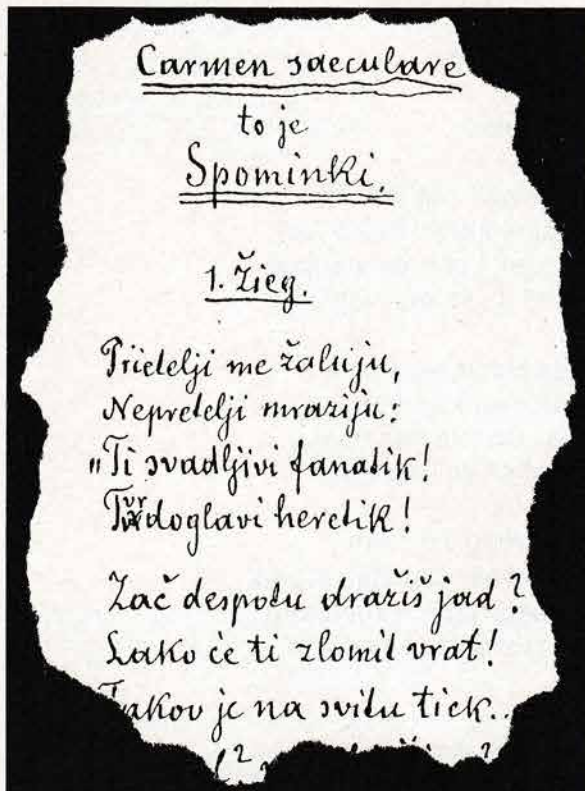 Carmen saeculare
to je
Spominki.
1. Žieg.
Prietelji me žaluju,
Nepretelji mraziju:
"Ti svadljivi fanatik!
Tvrdoglavi heretik!
Zač despotu dražiš jad?
Lako će ti zlomit vrat!
Takov je na svitu tiek..